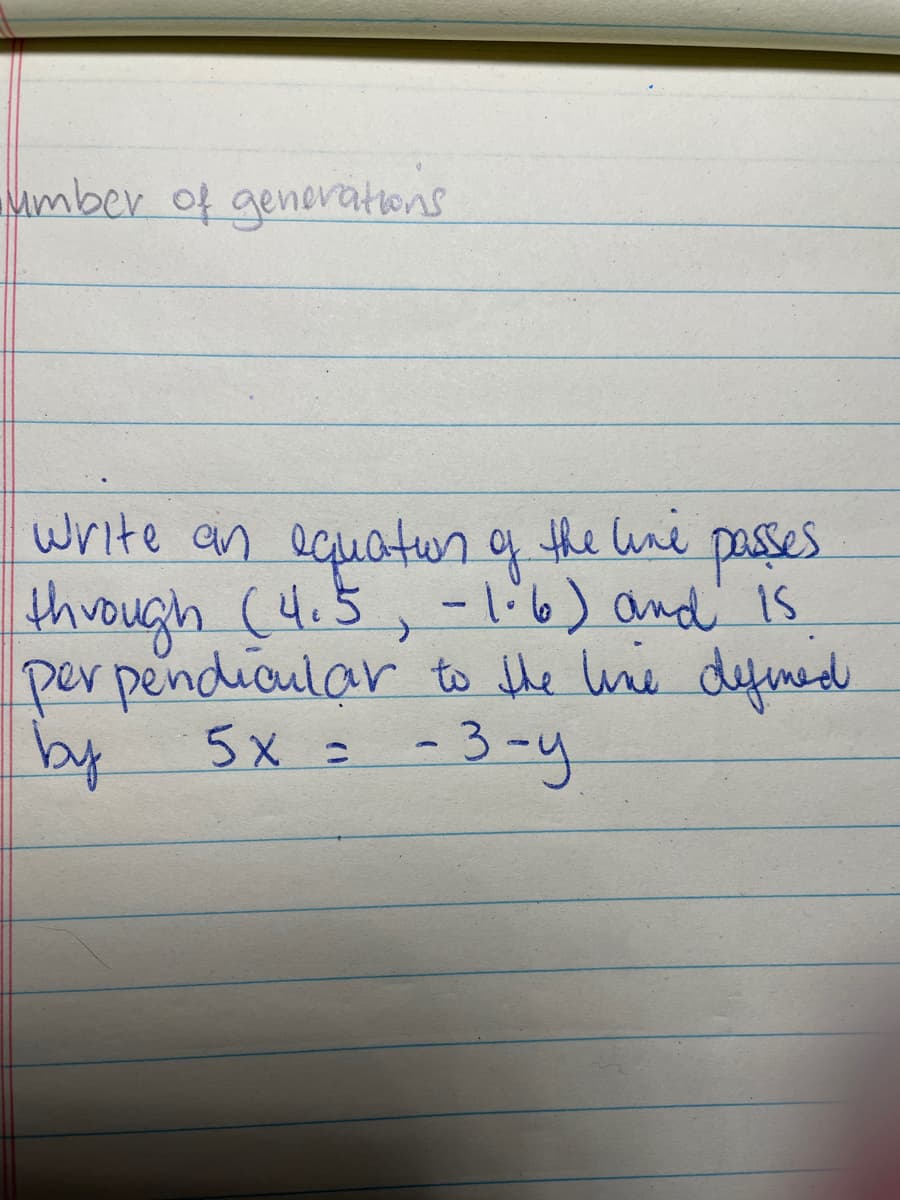 umber of generations
Write an equation of the line passes
through (4.5, -1.6) and is
perpendicular to the line defined
by 5x = -3-y